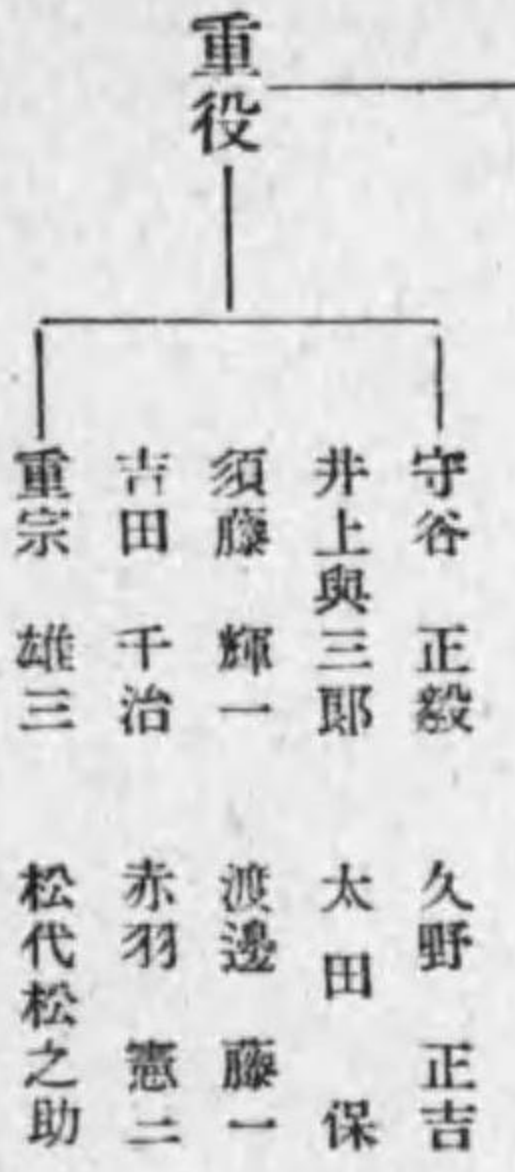 重役
守谷 正毅 久野 正吉
井上與三郎 太田 保
須藤 輝一 渡邊 藤一
吉田 千治 赤羽 憲二
重宗 雄三 松代松之助